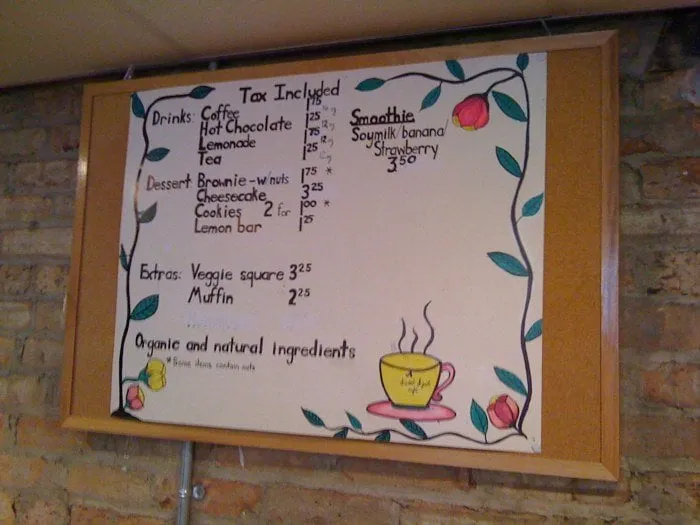 Tax Included
Drinks: Coffee 1.75
Hot Chocolate 1 25 12g
Lemonade 1 75 12g
Tea 1 25 12g
Smoothie
Soymilk/banana/
Strawberry
3.50
Dessert: Brownie - w/nuts 1 75 *
Cheesecake 3 25
Cookies 2 for 1 00 *
Lemon bar 1 25
Extras: Veggie square 3 25
Muffin 2 25
Organic and natural ingredients
* Some items contain nuts